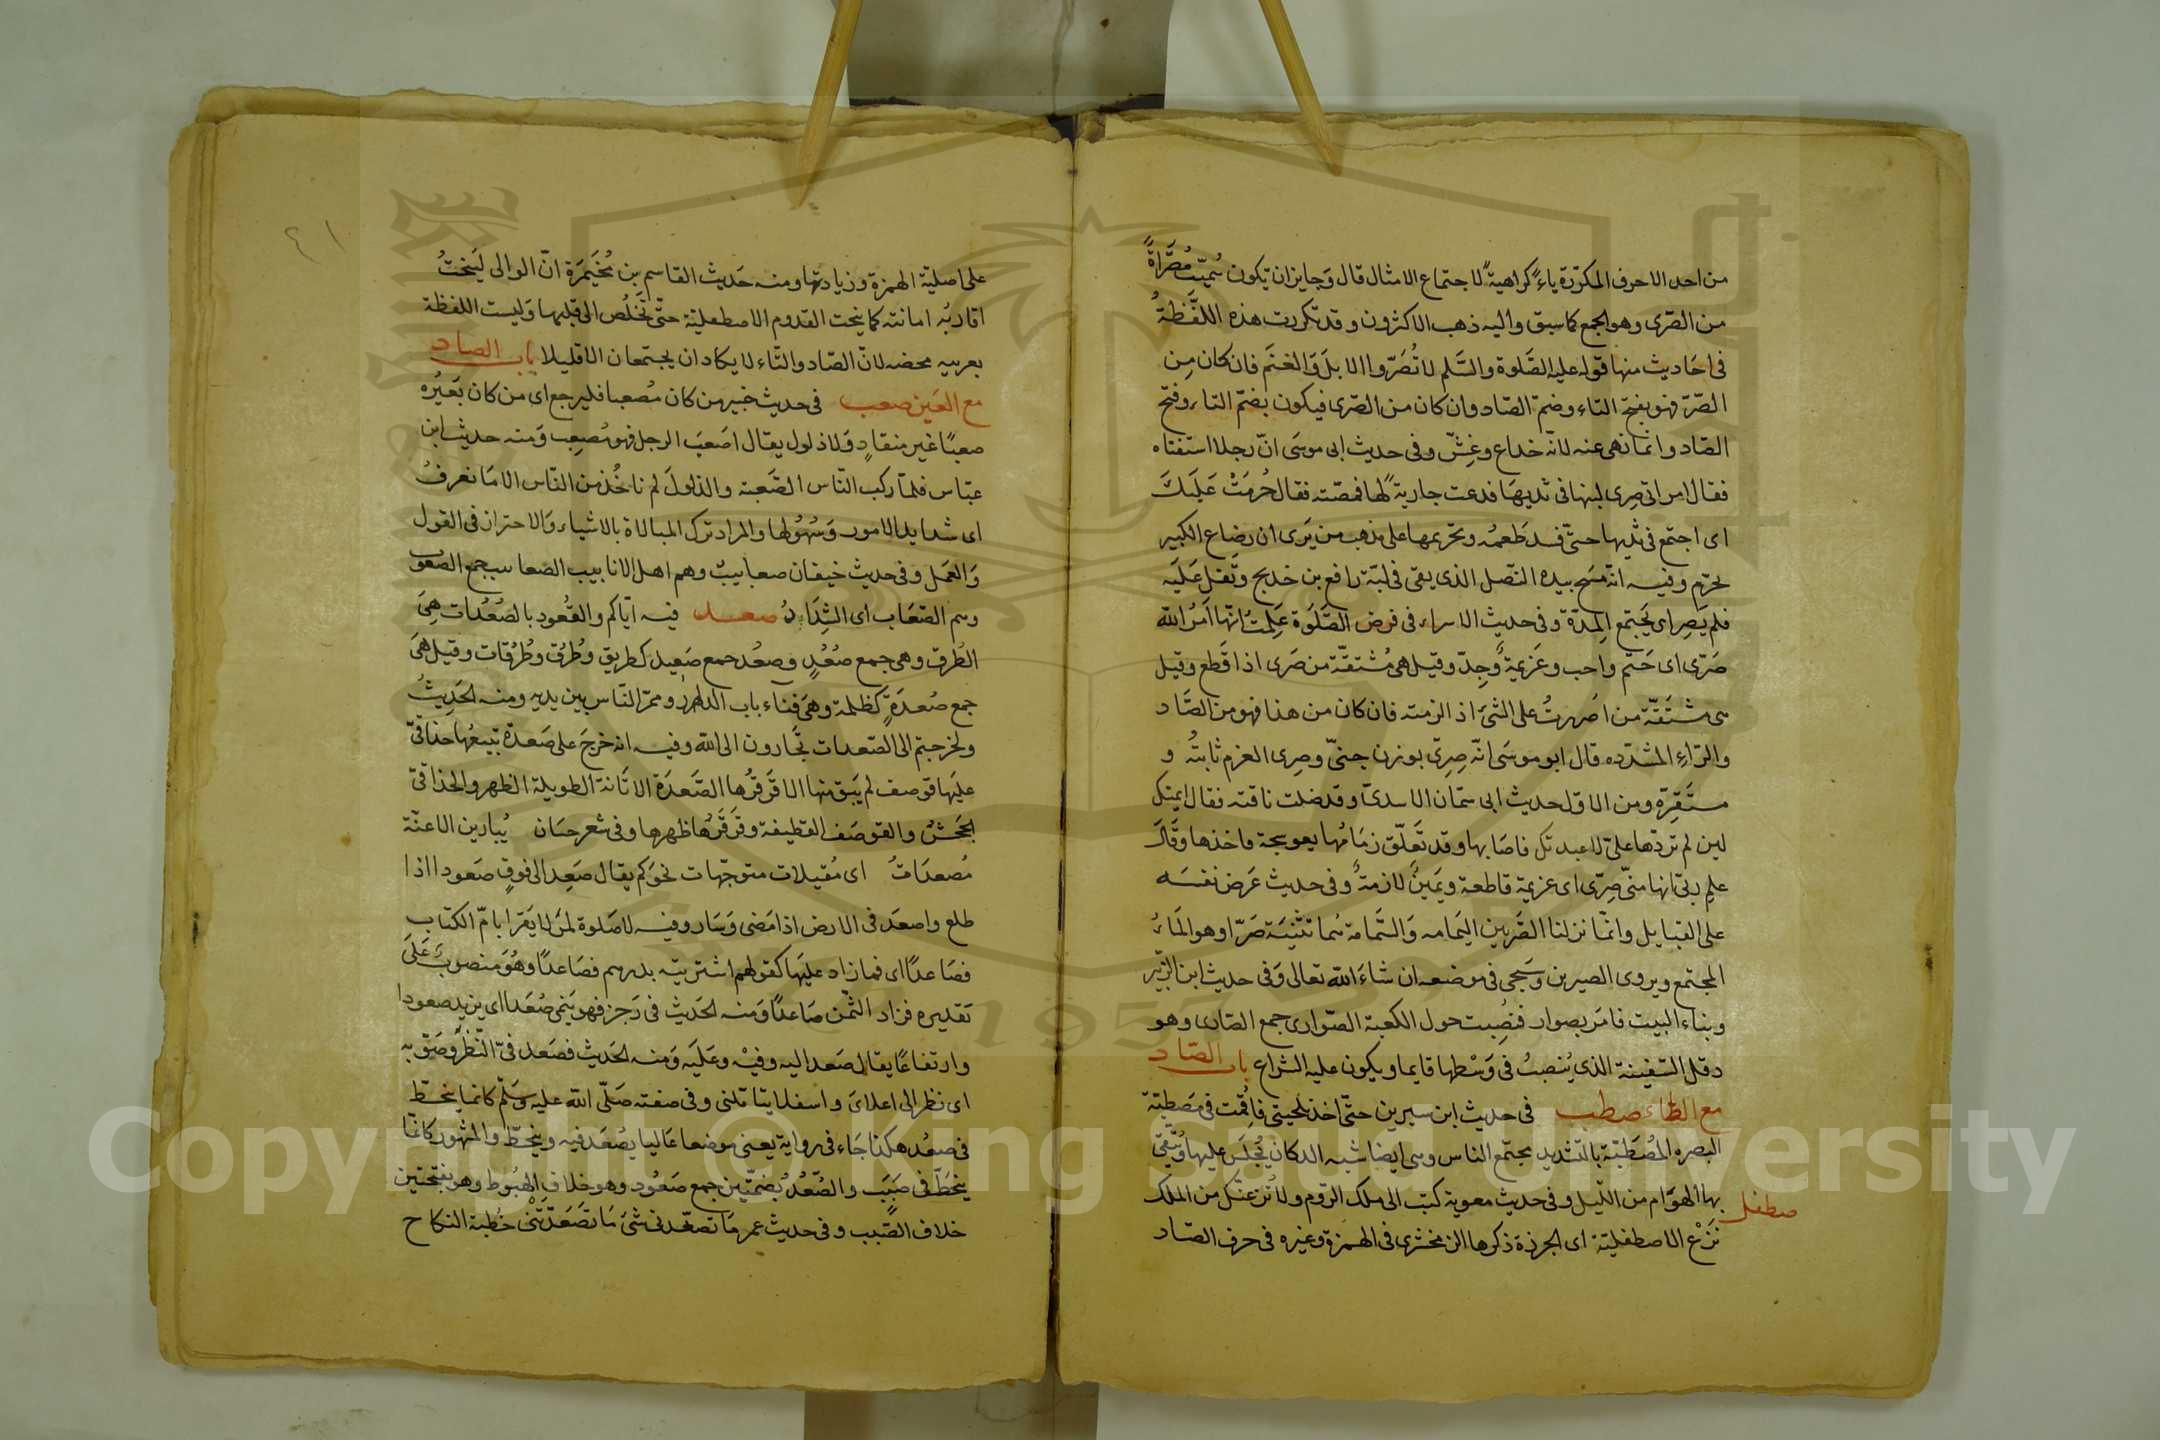 من احد الاحرف المكررة ياءً كراهيةً لاجتماع الامثال قال وَجايز ان تكون سُميّت مُصَّراةً
من الصّرى وهو الجمع كما سبق واليه ذهب الاكثرون وقد تكررت هذه اللَّفظةُ
فى احَاديث منها قوله عليه الصَّلوة والسَّلم لا تُصَرّوا الابلَ وَالغنَم فان كان مِن
الصّرّ فهو بفتح التاء وضمّ الصّاد وان كان من الصّرى فيكون بضمّ التاء وفتح
الصّاد وانّما نهى عنه لانّه خداع وغِشّ وفى حديث ابى موسَى انّ رجلا استفتاه
فقال امراتى صرى لبنها فى ثديهَا فدعت جاريةً لها فمصّته فقال حُرمَتْ عَلَيكَ
اى اجتمع فى ثديها حتّى فسد طَعمُه وتحريمها على مذهب من يَرى ان رضاع الكبير
يحرّم وفيه انّه مسَح بيده النّصل الذى بقى فى لبّة رافع بن خديج وتَفل عَلَيه
فلم يَصِر اى يَجتمع المِدّة وفى حديث الاسراء فى فرض الصَّلَوة عَلِمتُ انّها اَمرُ الله
صَرّى اى حَتم واجب وعَزيمة وَجِدّ وقيل هى مُشتقّة من صَرى اذا قَطع وقيل
هى مشتَقّة من اصَررتُ على الشئ اذ الزمته فان كان من هذا فهو من الصَّاد
والرّاءِ المشدّده قال ابو موسَى انّه صِرِىّ بوزن جنىّ وصِرى العزم ثابتُه و
مستَقِرّة ومن الاوّل حديث ابى سمّان الاسدىّ وقد ضلت ناقته فقال ايمنك
لين لم تردّها علىّ لا عبدتك فاصَابها وقد تَعلّق زمَامُها بعوسجة فاخذها وقَالَ
علم ربّى انها منّى صِرّى اى عزيمة قاطعة ويَمينٌ لازمةٌ وفى حديث عَرض نفسَه
على القبايل وانّما نزلنا الصَّرَيين اليَمامه وَالسَّمامة هُما تثنيَة صَرّا وهو المَاءُ
المجتمع ويروى الصيرين وسَيجى فى موضعه ان شاءَ الله تعالى وَفى حديث ابن الزّبير
وبناء البيت فامَر بصوار فنُصِبت حول الكعبة الصّوارى جمع الصّارى وهو
دقل السّفينة الذى يُنصبُ فى وَسْطِها قايما ويكون عليه الشراع باب الصّاد
مع الطّاء صطب فى حديث ابن سيرين حتّى اخذ بلحيتى فاُقِمْت فى مَصطبّة
البصره المُصْطَبّة بالتّشديد مجتمع الناس وهى ايضا شبه الدكان يُجلَس عليها ويُتّقَى
بها الهوَام من اللّيل وفى حديث معوية كتب الى ملك الرّوم ولاَنزعنّك من الملك
صطفل
نَزْع الاصطفليّة اى الجزرة ذكرها الزمخشرى فى الهمزة وغيره فى حرف الصّاد
٤١
على اصليّة الهمزة وزيادتها ومنه حَديث القاسم بن مُخَيمَرَة انّ الوالى ليَنحتُ
اقاربُه امانته كما ينحت القدوم الاصطفليّة حتّى تَخلُص الى قلبها وَليست اللفظة
بعربيه محضه لانّ الصّاد والتّاء لا يكادان يجتمعان الا قليلا باب الصاد
مع العَين صعب فى حديث خيبر من كان مُصعبا فليرجع اى من كان بَعيُره
صعبًا غير منقادٍ وَلا ذلول يقال اصَعبَ الرجل فهو مُصعِب وَمنه حديث ابن
عبّاس فلمّا ركب النّاس الصّعبة والذلولَ لم ناخُذ من النّاس الا مَا نعرفُ
اى شدايد الامور وَسُهُولها والمراد ترك المبالاة بالاشياء وَالاحتراز فى القول
وَالعمَل وفى حديث خيفان صعابيبٌ وهم اهل الانابيب الصّعابيب جمع الصعوب
وهم الصّعَاب اى الشِدَاد صعد فيه ايّاكم والقُعود بالصُعُدات هِىَ
الطُرق وهى جمع صُعُدٍ وصعُد جمع صَعِيد كطريق وطُرُق وطُرُقات وقيل هىَ
جمع صُعدَةٍ كظلمة وهىَ فناء باب الدار وممرّ النّاس بين يديه ومنه الحَديثُ
ولخرجتم الى الصّعدات تجَارون الى الله وفيه انه خرجَ على صَعدةٍ يتبعُها حذاقىّ
عليَها قوصف لم يَبق منها الا قَرقرُها الصَّعدَة الاتانة الطويلة الظهر والحذاقىّ
الجَحَشُ والقوصَف القطيفة وقَرقَرُها ظهرها وفى شعر حسَان يُبارين الاعنّة
مُصعدَاتٌ اى مُقبلات متوجّهات نحوَكم يقال صَعِد الى فوقٍ صَعودا اذا
طلع واصعدَ فى الارض اذا مَضى وَسَار وفيه لا صَلوة لمَن لا يَقرا بامّ الكتاب
فصَاعدًا اى فمازاد عليَها كقولهم اشتريته بدرهم فصَاعدًا وهُوَ منصوبٌ عَلىَ
تقديره فزاد الثّمن صَاعدًا وَمنه الحَديث فى رَجز فهو يَنمى صُعَدا اى يزيد صعودا
وارتفاعًا يقال صَعد اليه وفيْه وعَليَه وَمنه الحَديث فصَعد فىّ النّظر وصَوّبه
اى نظر الى اعلاىَ واسفلى يتاملنى وفى صفته صَلّى الله عليه وسَلّم كانما ينحَطّ
فى صعُد هكذا جَاء فى رواية يعنى موضعا عَاليا يصُعَد فيه وينحطّ والمشهور كانمّا
ينحَطّ فى صَبَب والصُعُدُ بضمّتَين جمع صَعُود وهو خلاف الهبُوط وهو بفتحتين
خلاف الصَّبب وفى حديث عمر مَا تصعّدنى شئ مَا تَصَعَدّتنى خُطبة النكاح
Copyright © King Saud University
1957